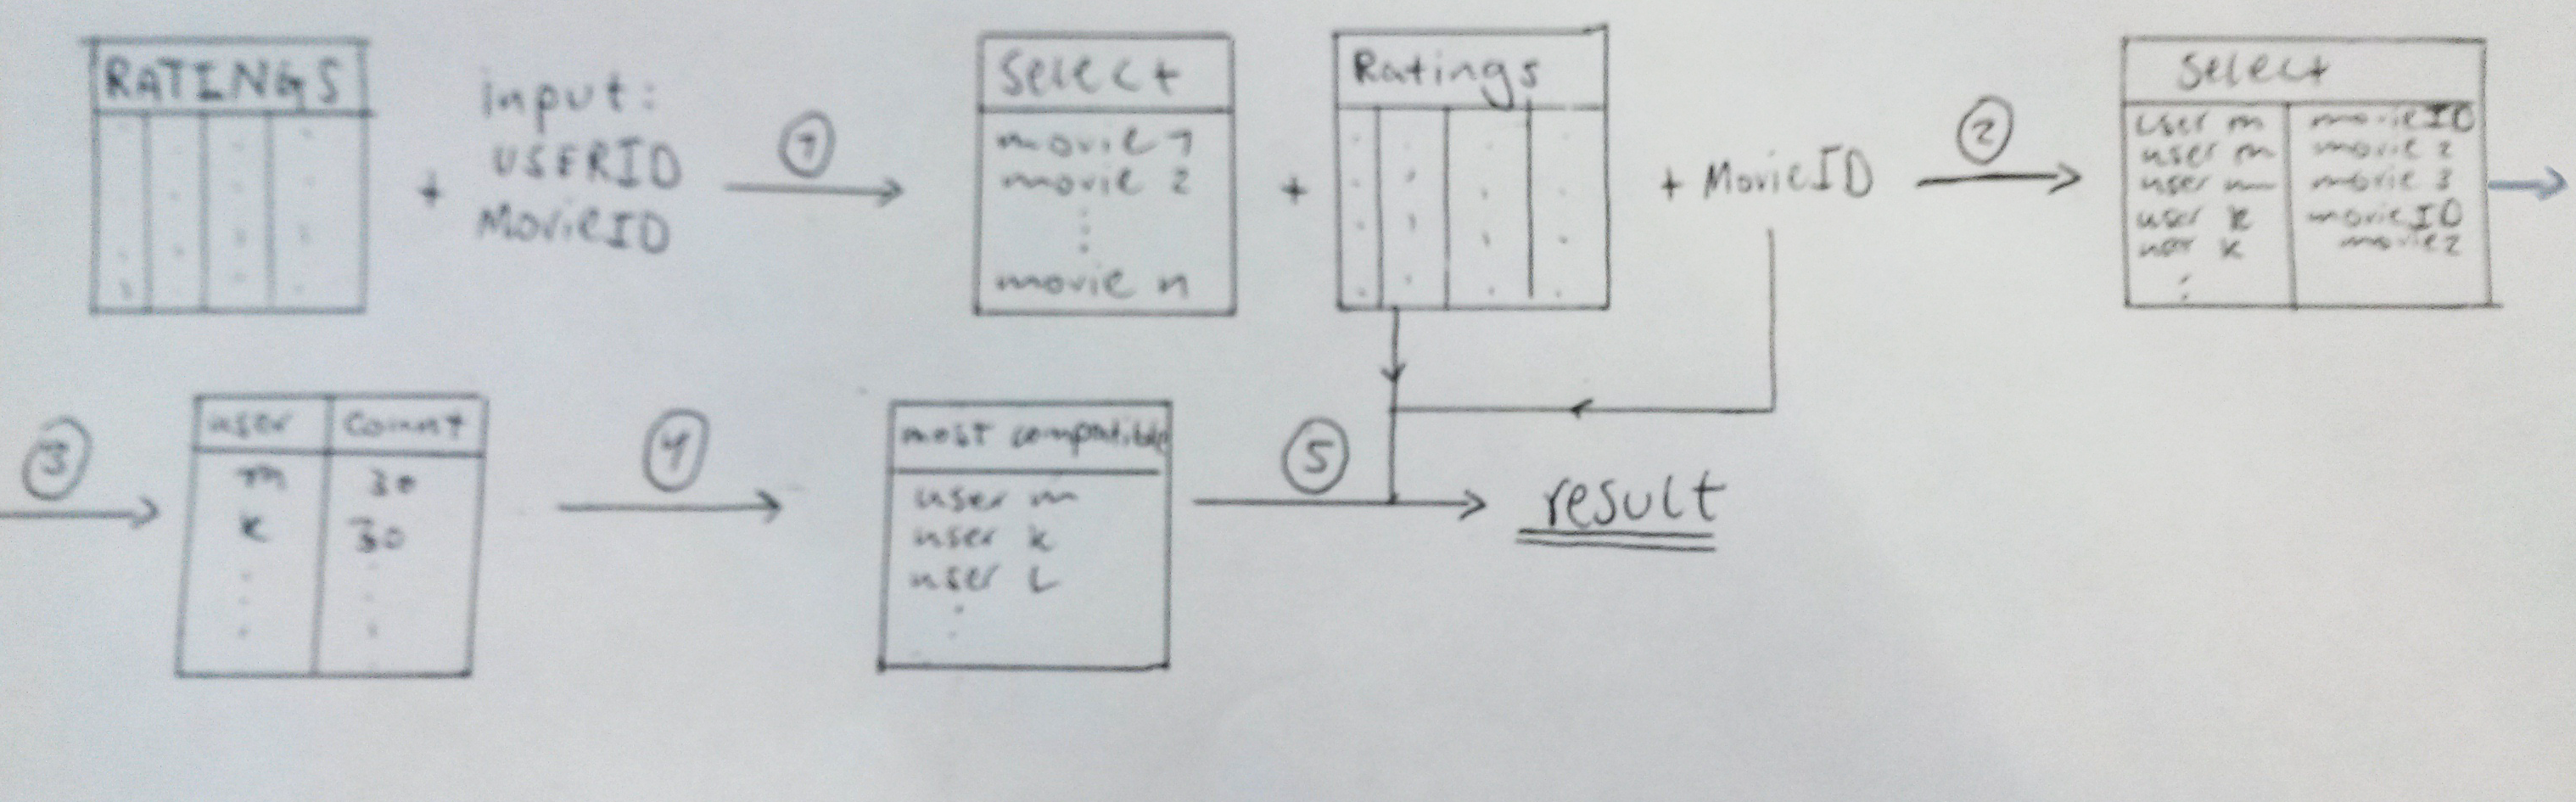 RATINGS
+
input:
USERID
MovieID
1
Select
movie 1
movie 2
movie n
+
Ratings
+ MovieID
2
Select
user m movieID
user m movie 2
user m movie 3
user k movieID
user k movie 2
3
user Count
m 30
k 30
4
most compatible
user m
user k
user L
5
result